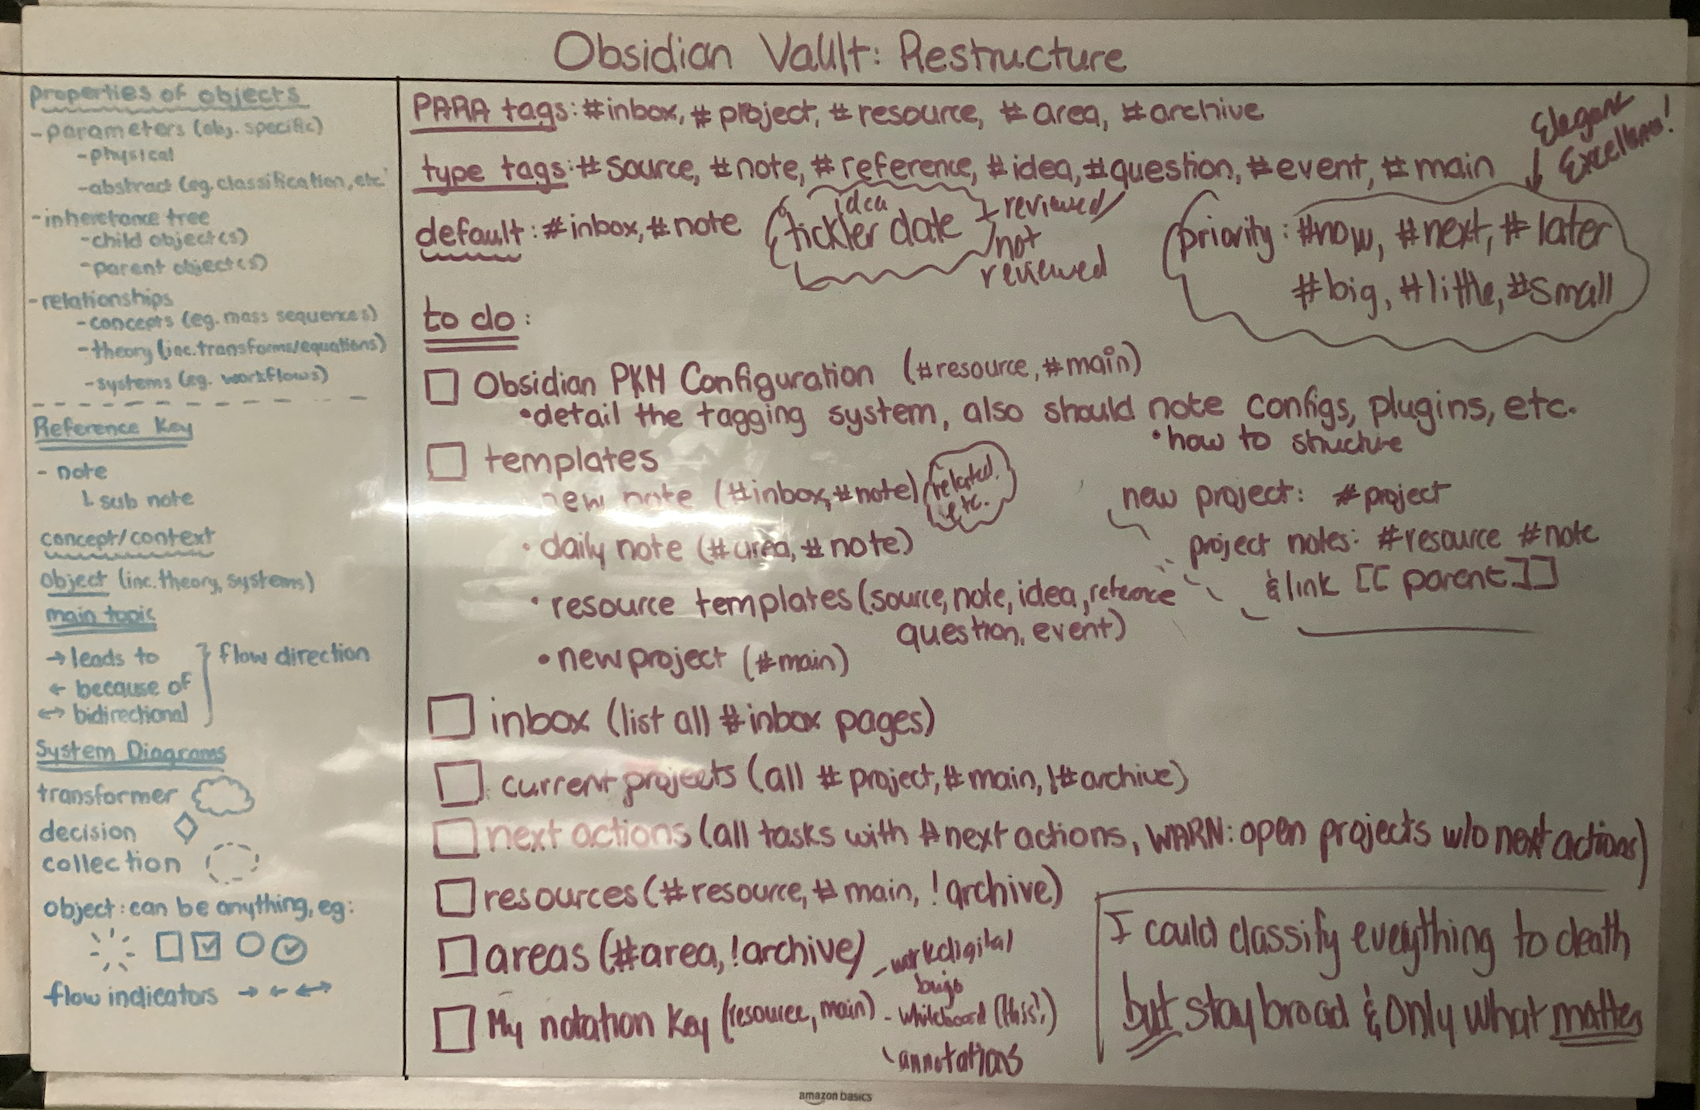 Obsidian Vault: Restructure
properties of objects
- parameters (obj. specific)
- physical
- abstract (eg. classification, etc
- inheretance tree
- child object(s)
- parent object(s)
- relationships
- concepts (eg. mass sequences)
- theory (inc. transforms/equations)
- systems (eg. workflows)
Reference Key
- note
sub note
concept/context
object (inc. theory, systems)
main topic
→ leads to
← because of
↔ bidirectional
flow direction
System Diagrams
transformer
decision
collection
object: can be anything, eg:
flow indicators → ← ↔
PARA tags: #inbox, #project, #resource, #area, #archive
type tags: #source, #note, #reference, #idea, #question, #event, #main
default: #inbox, #note
idea
tickler date
reviewed
not
reviewed
Elegant
Excellent!
priority: #now, #next, #later
#big, #little, #small
to do:
☐ Obsidian PKM Configuration (#resource, #main)
• detail the tagging system, also should note configs, plugins, etc.
• how to structure
☐ templates
new note (#inbox, #note)
related.
etc.
• daily note (#area, #note)
• resource templates (source, note, idea, reference
question, event)
• new project (#main)
new project: #project
project notes: #resource #note
& link [[ parent ]]
☐ inbox (list all #inbox pages)
☐ current projects (all #project, #main, !#archive)
☐ next actions (all tasks with #next actions, WARN: open projects w/o next actions)
☐ resources (#resource, #main, !archive)
☐ areas (#area, !archive)
☐ My notation key (resource, main)
- digital
- whiteboard (this!)
- annotations
I could classify everything to death
but stay broad & only what matters
amazon basics